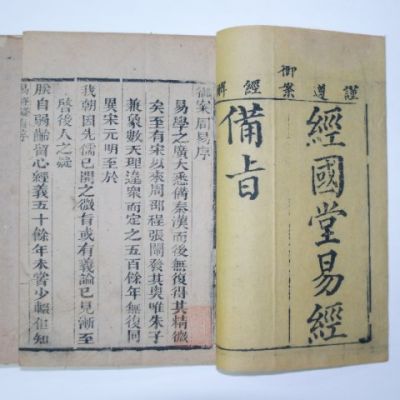 謹遵御案經解
經國堂易經
備旨
御案周易序
易學之廣大悉備秦漢而後無復得其精微
矣至有宋以來周邵程張闡發其奧唯朱子
兼象數天理違衆而定之五百餘年無復同
異宋元明至於
我朝因先儒已開之微旨或有議論已見漸至
啓後人之疑
朕自弱齡留心經義五十餘年未嘗少輟但知